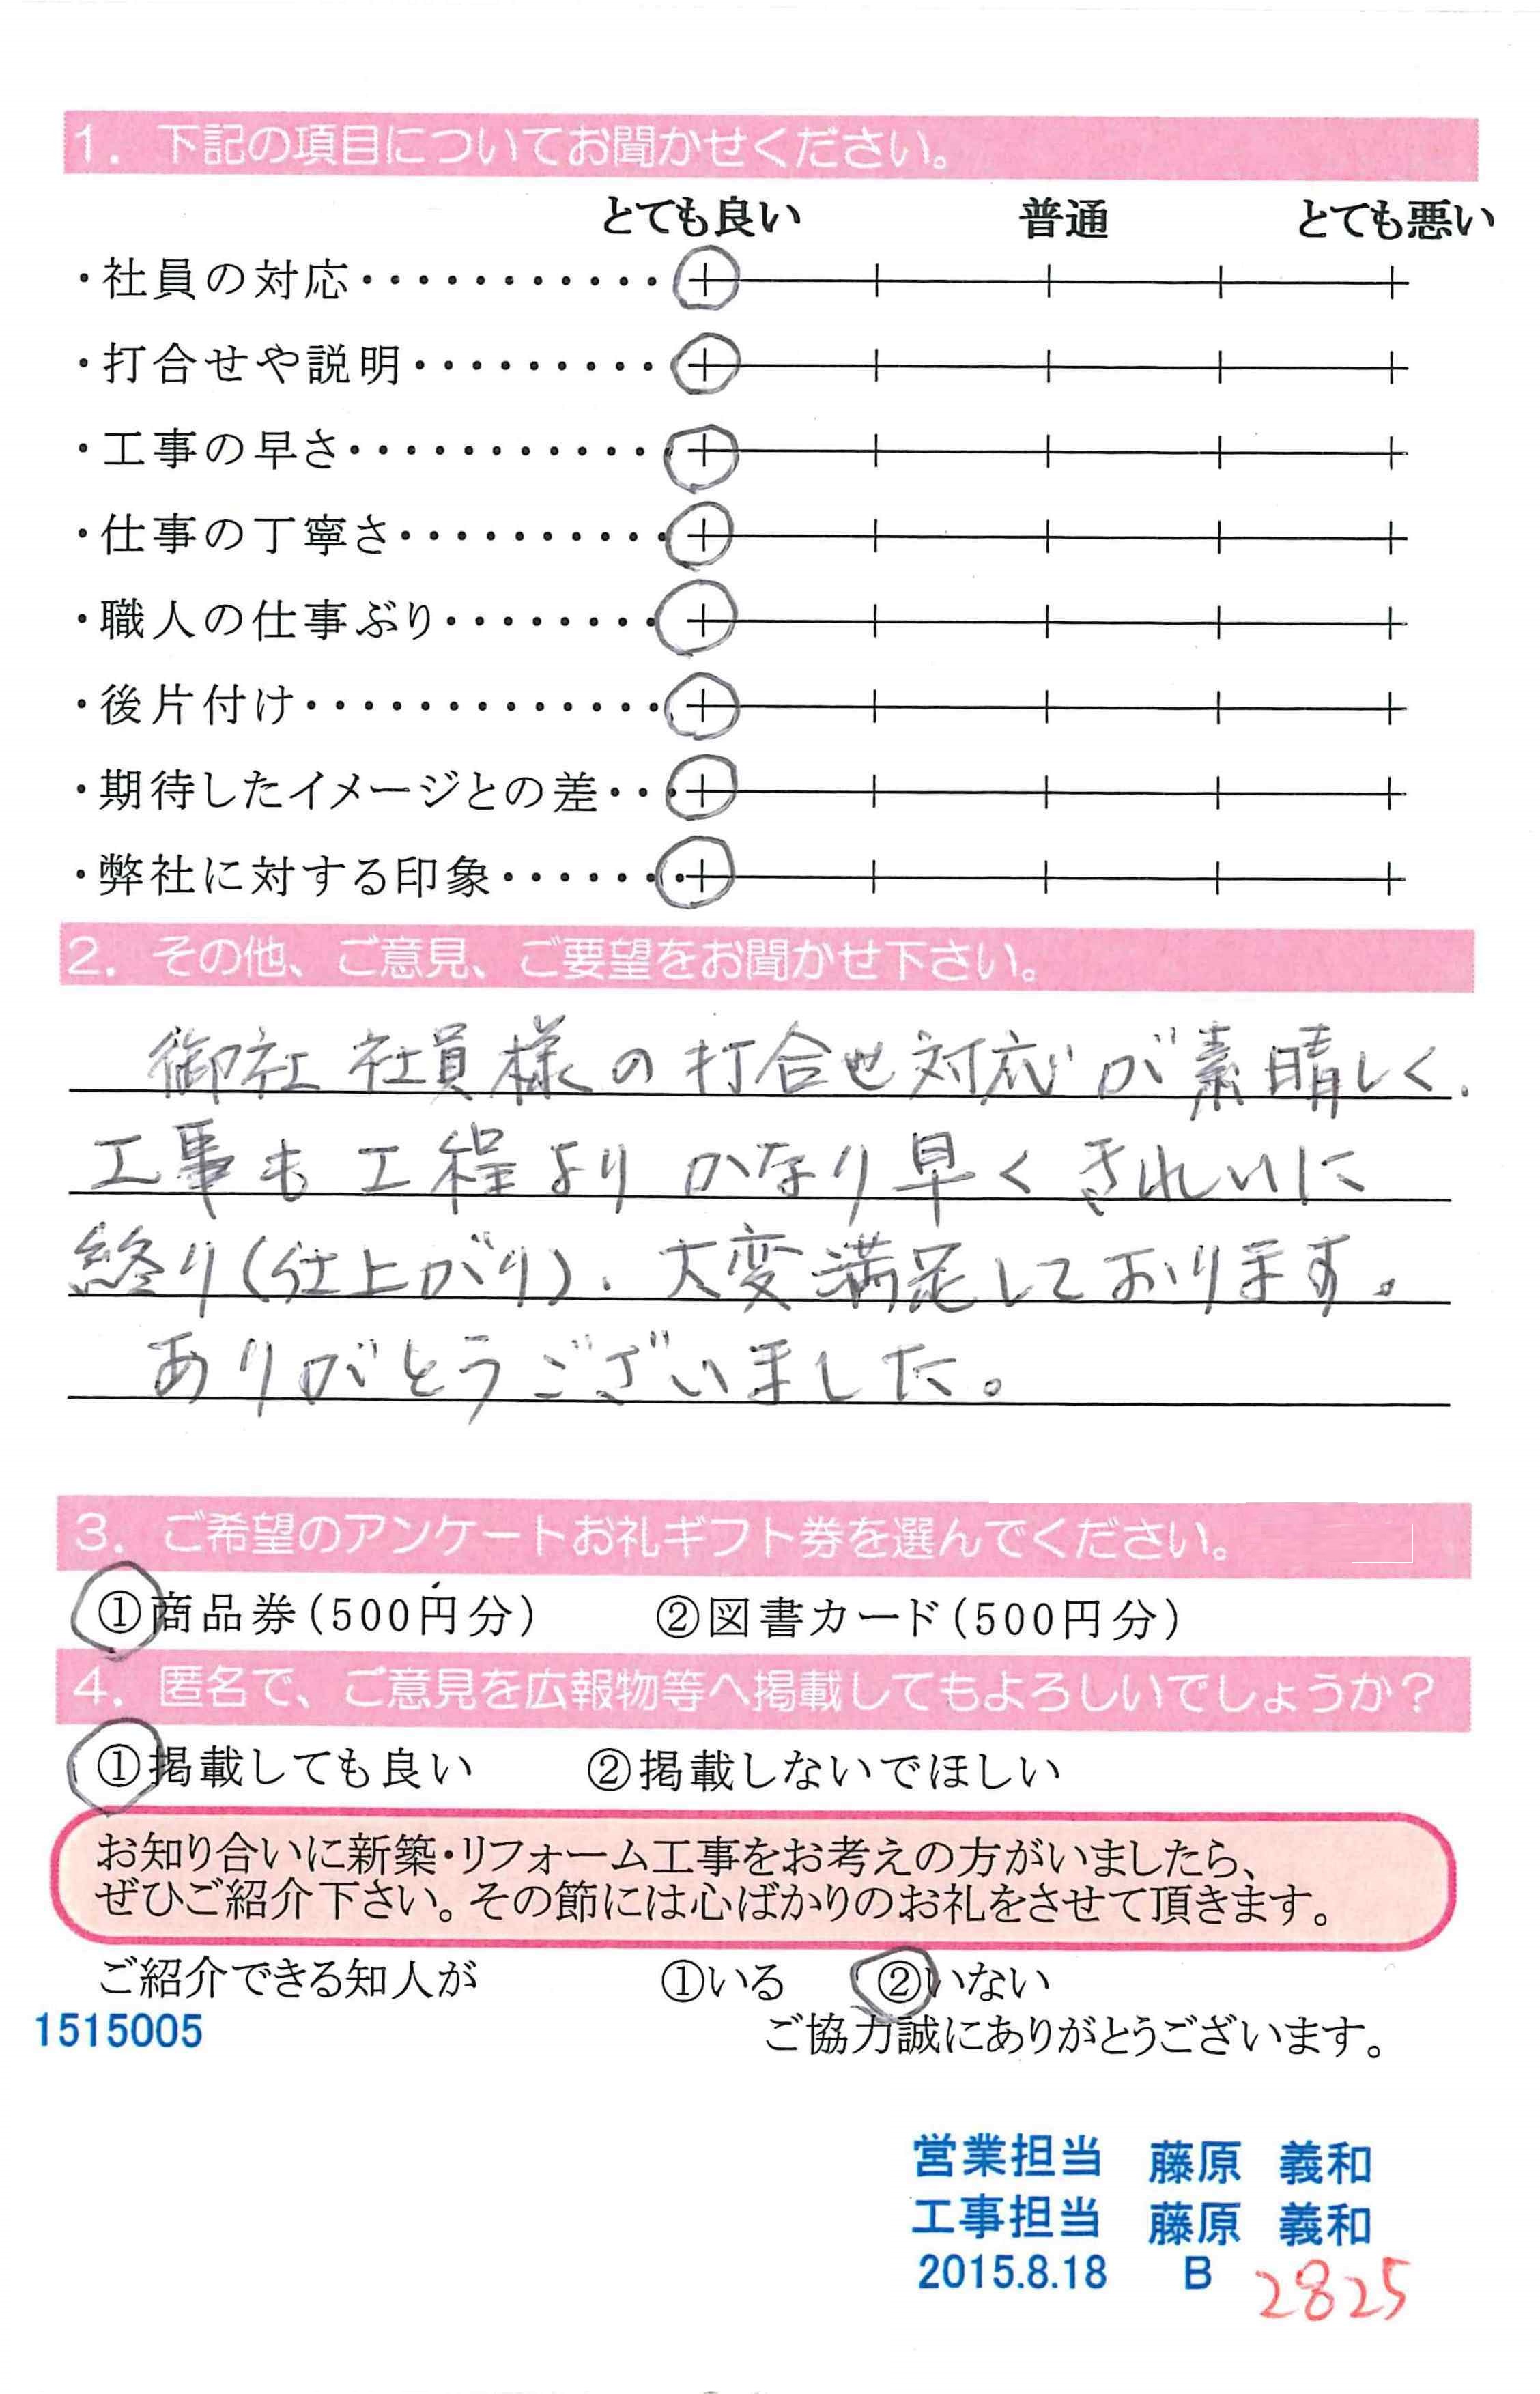 1. 下記の項目についてお聞かせください。
とても良い 普通 とても悪い
・社員の対応・・・・・・・・・・・
・打合せや説明・・・・・・・・・
・工事の早さ・・・・・・・・・・・
・仕事の丁寧さ・・・・・・・・・・
・職人の仕事ぶり・・・・・・・・
・後片付け・・・・・・・・・・・・・
・期待したイメージとの差・・・
・弊社に対する印象・・・・・・・
2. その他、ご意見、ご要望をお聞かせ下さい。
御社 社員様の打合せ対応が素晴しく、
工事も工程よりかなり早くきれいに
終り(仕上がり)、大変満足しております。
ありがとうございました。
3. ご希望のアンケートお礼ギフト券を選んでください。
①商品券(500円分) ②図書カード(500円分)
4. 匿名で、ご意見を広報物等へ掲載してもよろしいでしょうか?
①掲載しても良い ②掲載しないでほしい
お知り合いに新築・リフォーム工事をお考えの方がいましたら、
ぜひご紹介下さい。その節には心ばかりのお礼をさせて頂きます。
ご紹介できる知人が ①いる ②いない
1515005 ご協力誠にありがとうございます。
営業担当 藤原 義和
工事担当 藤原 義和
2015.8.18 B 2825